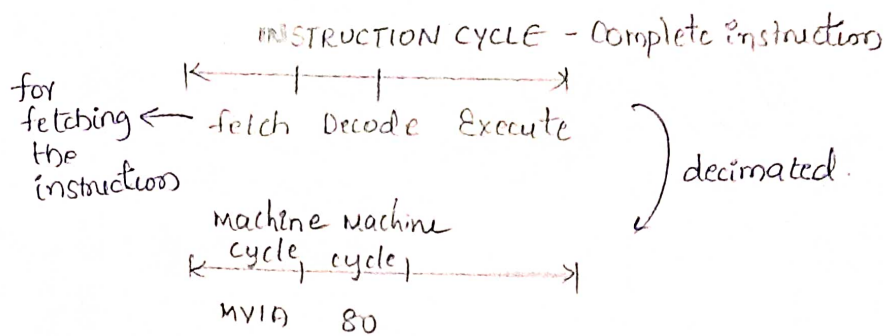 INSTRUCTION CYCLE - Complete instruction
for
fetching
the
instruction
fetch Decode Execute
decimated.
Machine Machine
cycle cycle
MVIA 80